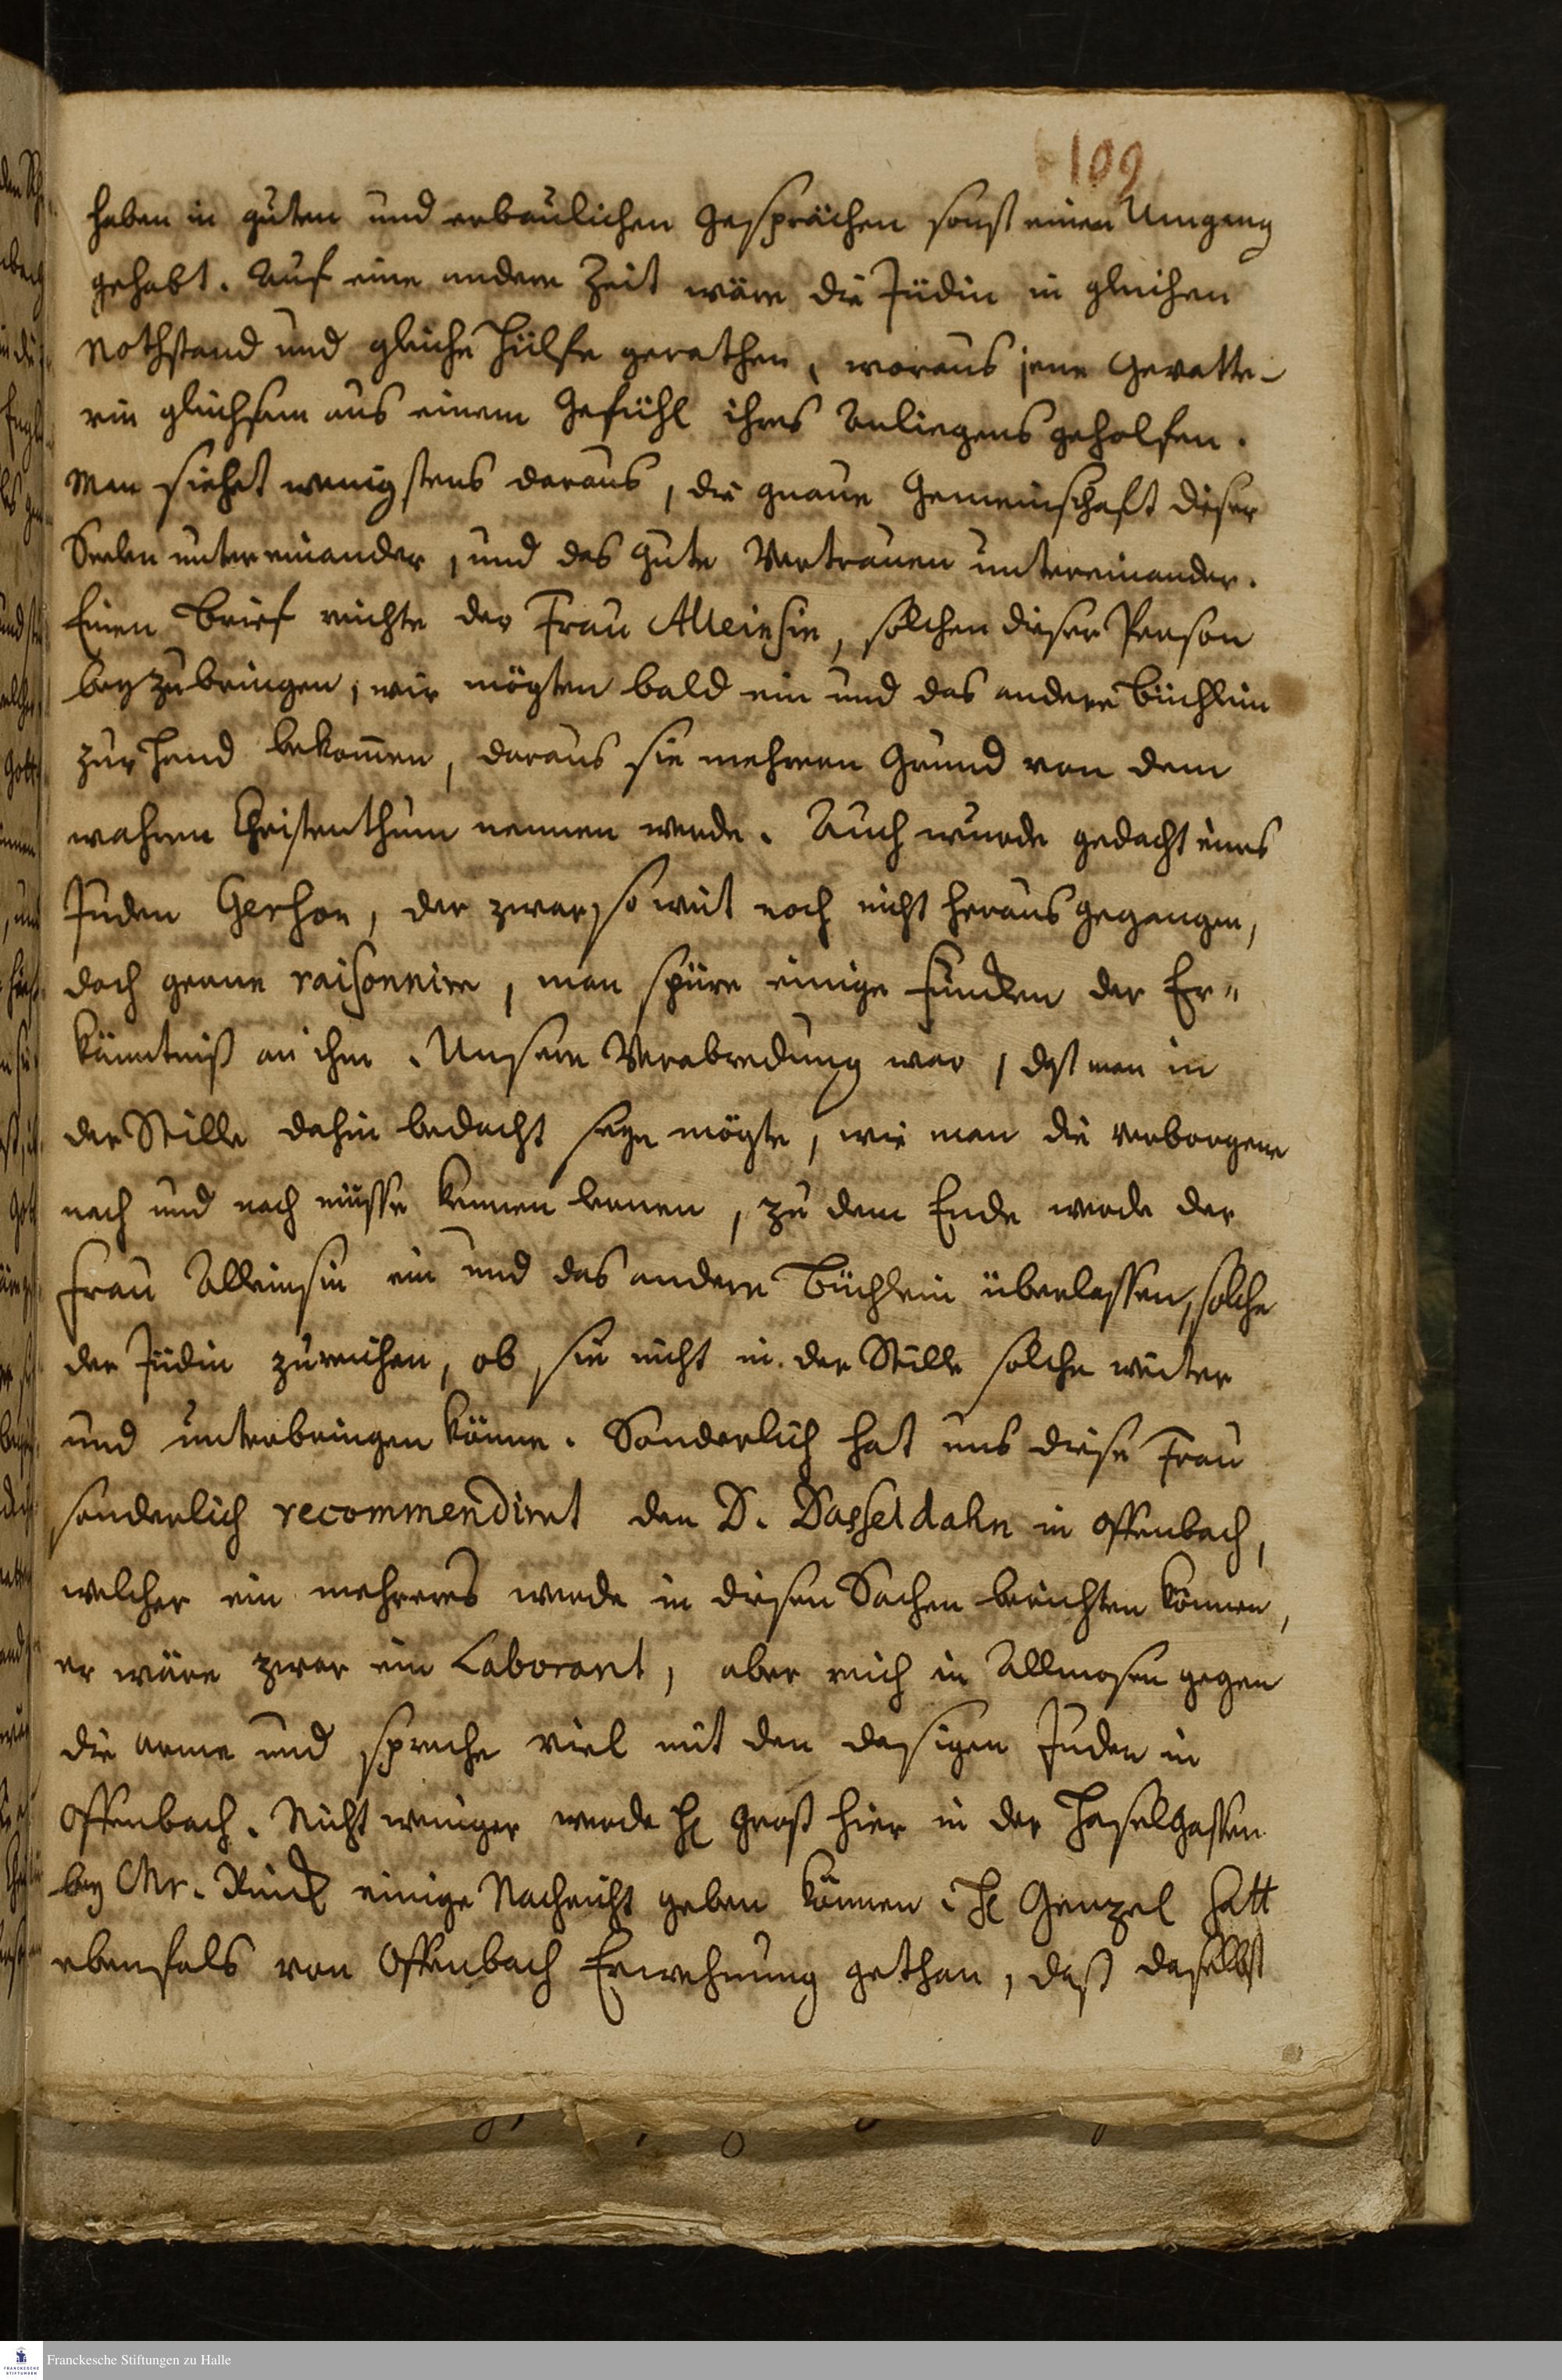 109
haben in guten und erbaulichen Gesprächen sonst einen Umgang
gehabt. Auf eine andere Zeit wäre die Jüdin in gleichen
Nothstand und gleiche Hülfe gerathen, woraus jene Gevatte-
rin gleichsam aus einem Gefühl ihres Anliegens geholfen.
Man siehet wenigstens daraus, die gnaue Gemeinschaft dieser
Seelen untereinander, und das gute Vertrauen untereinander.
Einen Brief reichte der Frau Alleinsin, solchen dieser Person
beyzubringen, wir mögten bald ein und das andere Büchlein
zur Hand bekom̄en, daraus sie mehrern Grund von dem
wahren Christenthum nennen werde. Auch wurde gedacht eines
Juden Gerhon, der zwar so weit noch nicht herausgegangen,
doch gerne raisonnire, man spüre einige Funcken der Er-
käntniß an ihm. Unsere Verabredung war, dass man in
der Stille dahin bedacht seyn mögte, wie man die verborgene
nach und nach müsse kennen lernen, zu dem Ende werde der
Frau Alleinsin ein und das andere Büchlein überlassen, solche
der Jüdin zureichen, ob sie nicht in der Stille solche weiter
und unterbringen könne. Sonderlich hat uns diese Frau
sonderlich recommendiret den D. Dasseldahn in Offenbach,
welcher ein mehreres werde in diesen Sachen berichten können,
er wäre zwar ein Laborant, aber reich in Allmosen gegen
die arme und spreche viel mit den dasigen Juden in
Offenbach. Nicht weniger werde H. Groß hier in der Haselgassen
bey Mr. Rück einige Nachricht geben können. H. Genzel hatt
ebenfals von Offenbach Erwehnung gethan, daß daselbst
Franckesche Stiftungen zu Halle